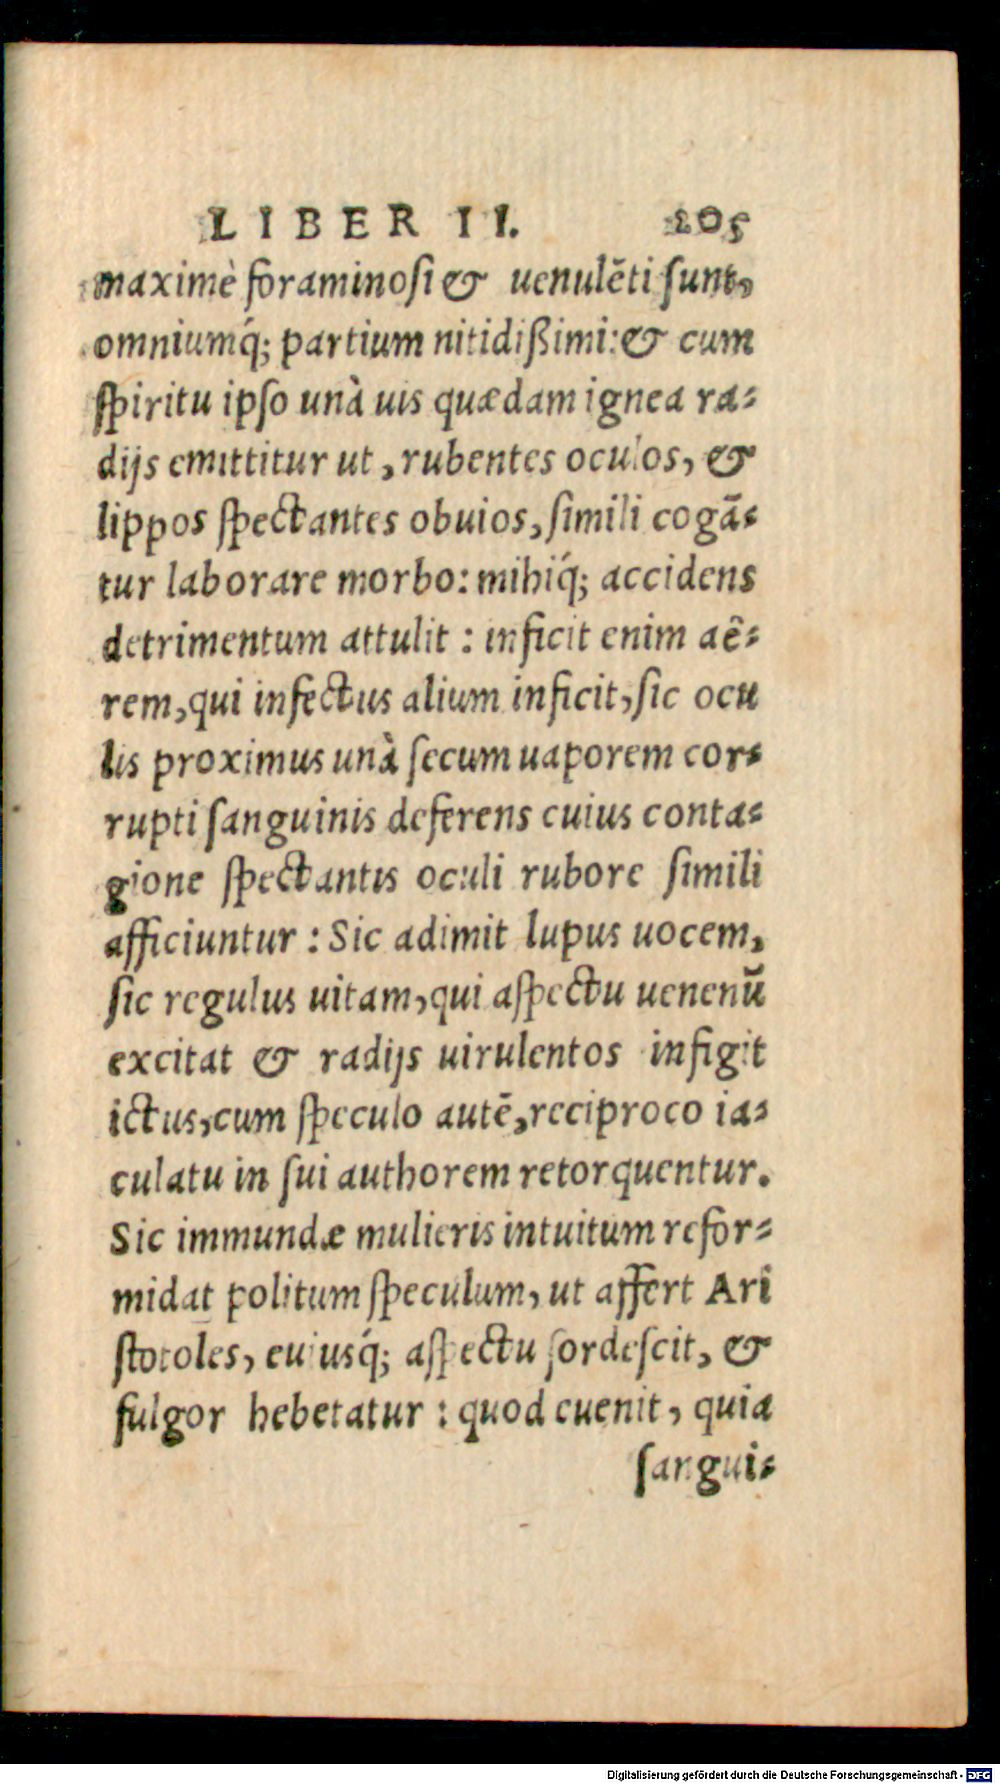 LIBER II. 205
maximè foraminosi & uenulẽti sunt,
omniumq́; partium nitidißimi: & cum
spiritu ipso unà uis quædam ignea ra-
dijs emittitur ut, rubentes oculos, &
lippos spectantes obuios, simili cogã-
tur laborare morbo: mihiq́; accidens
detrimentum attulit : inficit enim aë-
rem, qui infectus alium inficit, sic ocu
lis proximus unà secum uaporem cor-
rupti sanguinis deferens cuius conta-
gione spectantis oculi rubore simili
afficiuntur : Sic adimit lupus uocem,
sic regulus uitam, qui aspectu uenenũ
excitat & radijs uirulentos infigit
ictus, cum speculo autẽ, reciproco ia-
culatu in sui authorem retorquentur.
Sic immundæ mulieris intuitum refor-
midat politum speculum, ut affert Ari
stotoles, euiusq́; aspectu sordescit, &
fulgor hebetatur : quod euenit, quia
sangui-
Digitalisierung gefördert durch die Deutsche Forschungsgemeinschaft - DFG